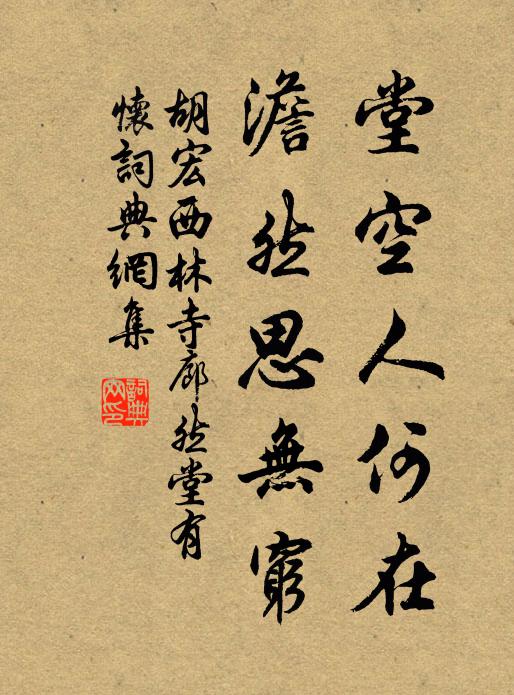 堂空人何在
澹然思無窮
胡宏西林寺廊然堂有
懷詞典網集
詞典
网印